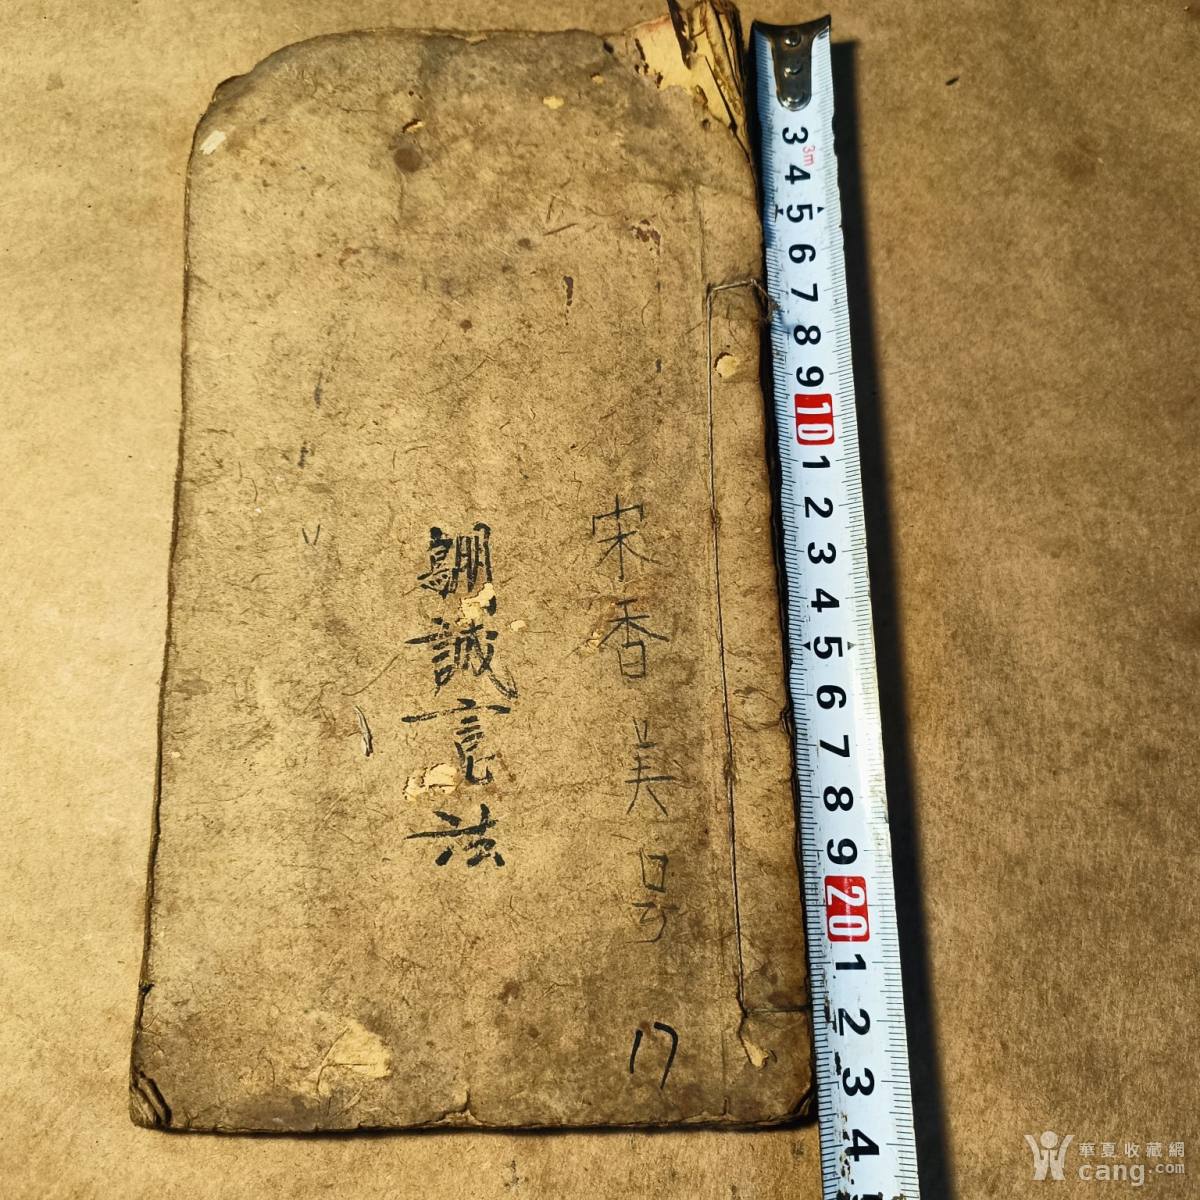 宋香美号
17
誠亮法
3m
3
4
5
6
7
8
9
10
1
2
3
4
5
6
7
8
9
20
1
2
3
4
華夏收藏網
cang.com